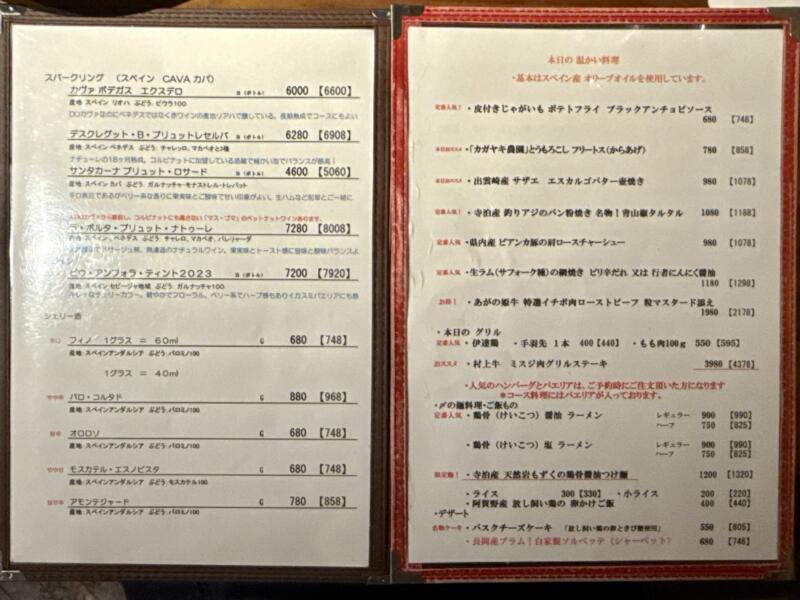 スパークリング （スペイン CAVAカバ）
カヴァ ボデガス エクスデロ 白（ボトル） 6000 【6600】
産地 スペイン リオハ ぶどう:ビウラ100
デスクレグット・B・ブリュットレセルバ 白（ボトル） 6280 【6908】
産地:スペイン ペネデス ぶどう:チャレッロ、マカベオと2種
ナチューレの18ヶ月熟成。コルピナットに加盟している造蔵で細かい泡でバランスが最高！
サンタカーナ ブリュット・ロサード 白（ボトル） 4600 【5060】
産地:スペイン カバ ぶどう:ガルナッチャ・モナストレル・トレパット
ラ・ポルタ・ブリュット・ナトゥーレ 7280 【8008】
産地:スペイン、ペネデス ぶどう:チャレロ、マカベオ、パレリャーダ
ピウ・アンフォラ・ティント2023 白（ボトル） 7200 【7920】
産地:スペイン セビージャ地域 ぶどう:ガルナッチャ100
シェリー酒
辛口 フィノ 1グラス ＝ 60ml G 680 【748】
産地:スペインアンダルシア ぶどう:パロミノ100
1グラス ＝ 40ml
やや辛 パロ・コルタド G 880 【968】
産地:スペインアンダルシア ぶどう:パロミノ100
オロロソ G 680 【748】
産地:スペインアンダルシア ぶどう:パロミノ100
やや甘 モスカテル・エスノビスタ G 680 【748】
産地:スペインアンダルシア ぶどう:モスカテル100
アモンテジャード G 780 【858】
産地:スペインアンダルシア ぶどう:パロミノ100
本日の 温かい料理
・基本はスペイン産 オリーブオイルを使用しています。
定番人気！ ・皮付きじゃがいも ポテトフライ ブラックアンチョビソース
680 【748】
本日おススメ ・「カガヤキ農園」とうもろこし フリートス（からあげ） 780 【858】
本日おススメ ・出雲崎産 サザエ エスカルゴバター壷焼き 980 【1078】
定番人気！ ・寺泊産 釣りアジのパン粉焼き 名物！青山椒タルタル 1080 【1188】
定番人気 ・県内産 ビアンカ豚の肩ロースチャーシュー 980 【1078】
定番人気 ・生ラム（サフォーク種）の鍋焼き ピリ辛だれ 又は 行者にんにく醤油
1180 【1298】
お得！ ・あがの姫牛 特選イチボ肉ローストビーフ 粒マスタード添え
1980 【2178】
・本日の グリル
定番人気 ・伊達鶏 ・手羽先 1本 400【440】 ・もも肉100g 550【595】
おススメ ・村上牛 ミスジ肉グリルステーキ 3980【4378】
・人気のハンバーグとパエリアは、ご予約時にご注文頂いた方になります
＊コース料理にはパエリアが入っております。
・〆の麺料理・ご飯もの
定番人気 ・鶏骨（けいこつ）醤油 ラーメン レギュラー 900 【990】
ハーフ 750 【825】
・鶏骨（けいこつ）塩 ラーメン レギュラー 900 【990】
ハーフ 750 【825】
限定麺！ ・寺泊産 天然岩もずくの鶏骨醤油つけ麺 1200 【1320】
・ライス 300【330】 ・小ライス 200 【220】
・阿賀野産 放し飼い鶏の 卵かけご飯 400 【440】
・デザート
名物ケーキ ・バスクチーズケーキ 「放し飼い鶏の卵ときび糖使用」 550 【605】
・長岡産プラム！自家製ソルベッテ（シャーベット） 680 【748】